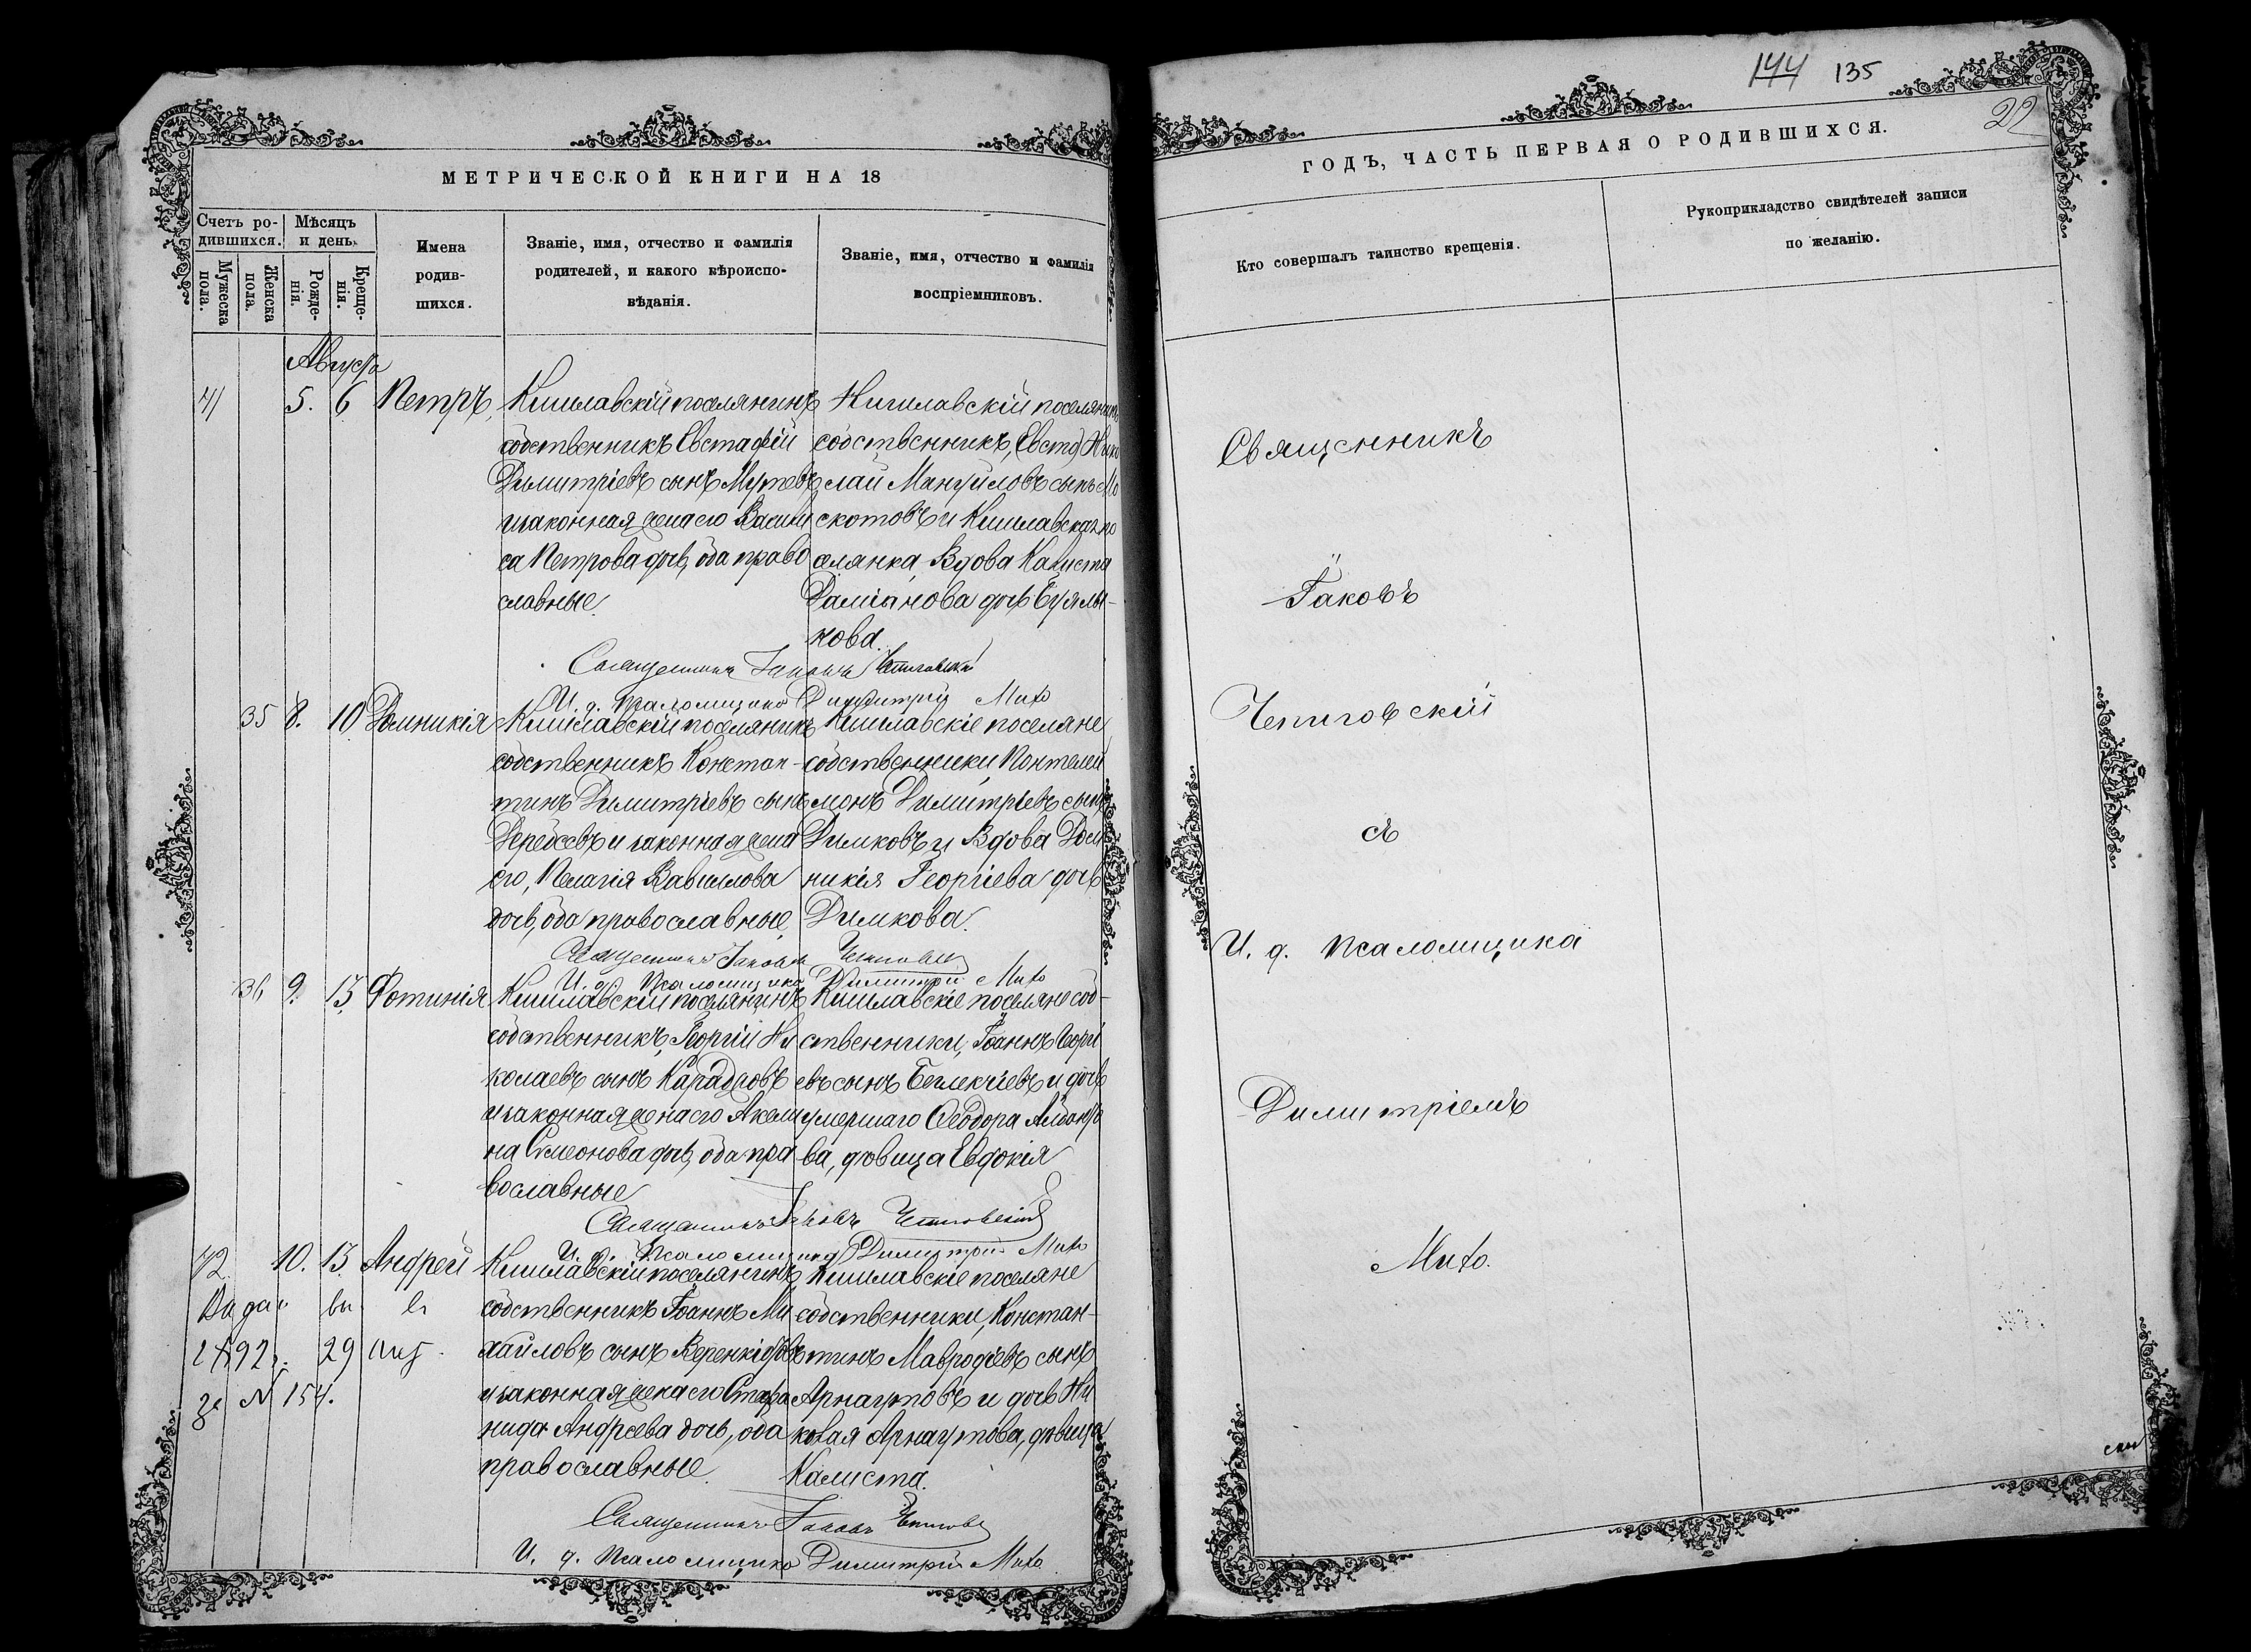 МЕТРИЧЕСКОЙ КНИГИ НА 18
Счетъ ро-
дившихся.
Мѣсяцъ
и день.
Мужеска
пола.
Женска
пола.
Рожде-
нія.
Креще-
нія.
Имена
родив-
шихся.
Званіе, имя, отчество и фамилія
родителей, и какого вѣроиспо-
вѣданія.
Званіе, имя, отчество и фамилія
воспріемниковъ.
Августа
41 5. 6 Петръ,
Кишлавскій поселянинъ
собственникъ Евстафій
Димитріевъ сынъ
и законная жена его Васили
са Петрова дочь, оба право
славные.
Кишлавскій поселянинъ
собственникъ, Нико
лай Мануйловъ сынъ Мо
скотовъ и Кишлавская по
селянка, Вдова Калиста
Даміанова дочь
кова.
Священникъ Іаковъ Чепиговскій
И. д. псаломщика Димитрій Михо
35 8. 10 Домникія
Кишлавскій поселянинъ
собственникъ Констан-
тинъ Димитріевъ сынъ
и законная жена
его, Пелагія Вавилова
дочь, оба православные.
Кишлавскіе поселяне
собственники, Пантелей
монъ Димитріевъ сынъ
Димковъ и Вдова Дом
никія Георгіева дочь
Димкова.
Священникъ Іаковъ Чепиговскій
И. д. Псаломщика Димитрій Михо
36 9. 13. Фотинія
Кишлавскій поселянинъ
собственникъ, Георгій Ни
колаевъ сынъ
и законная жена его Акели
на Симеонова дочь, оба пра
вославные
Кишлавскіе поселяне соб-
ственники, Іоаннъ Георгі
евъ сынъ Беглекчіевъ и дочь
умершаго Ѳеодора
ва, дѣвица Евдокія
Священникъ Іаковъ Чепиговскій
И. д. Псаломщика Димитрій Михо
42 10. 13. Андрей
1892 г. 29
за № 154.
Кишлавскій поселянинъ
собственникъ Іоаннъ Ми
хайловъ сынъ
и законная жена его Стефа
нида Андреева дочь, оба
православные.
Кишлавскіе поселяне
собственники, Констан-
тинъ Мавродіевъ сынъ
Арнаутовъ и дочь Ни
колая Арнаутова, дѣвица
Калиста.
Священникъ Іаковъ Чепиговскій
И. д. Псаломщика Димитрій Михо.
144 135
22
ГОДЪ, ЧАСТЬ ПЕРВАЯ О РОДИВШИХСЯ.
Кто совершалъ таинство крещенія.
Рукоприкладство свидѣтелей записи
по желанію.
Священникъ
Іаковъ
Чепиговскій
съ
И. д. Псаломщика
Димитріемъ
Михо.